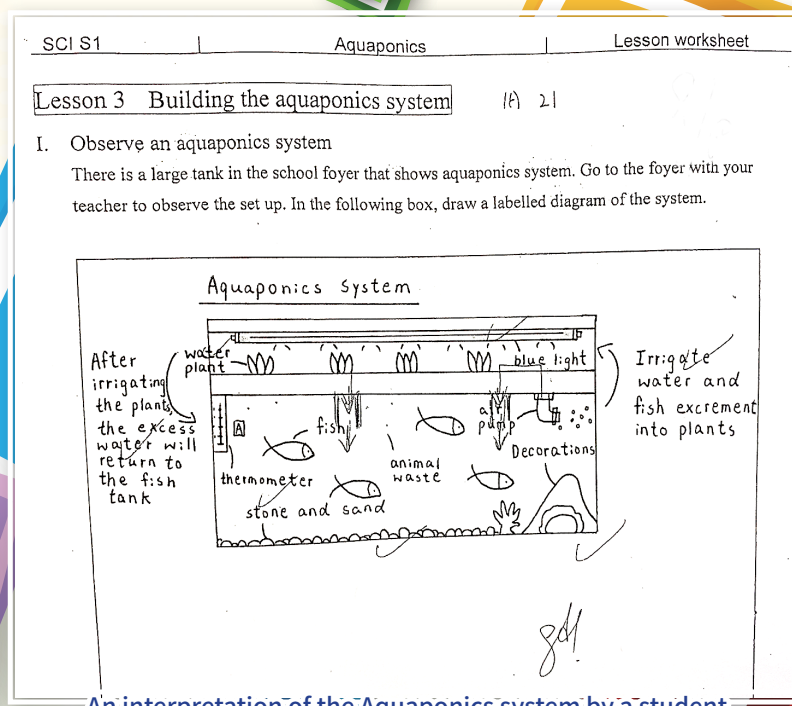 SCI S1 | Aquaponics | Lesson worksheet
Lesson 3 Building the aquaponics system 1A 21
I. Observe an aquaponics system
There is a large tank in the school foyer that shows aquaponics system. Go to the foyer with your
teacher to observe the set up. In the following box, draw a labelled diagram of the system.
Aquaponics System
After
irrigating
the plants,
the excess
water will
return to
the fish
tank
water
plant
blue light
Irrigate
water and
fish excrement
into plants
A
fish
pump
animal
waste
Decorations
thermometer
stone and sand
An interpretation of the Aquaponics system by a student